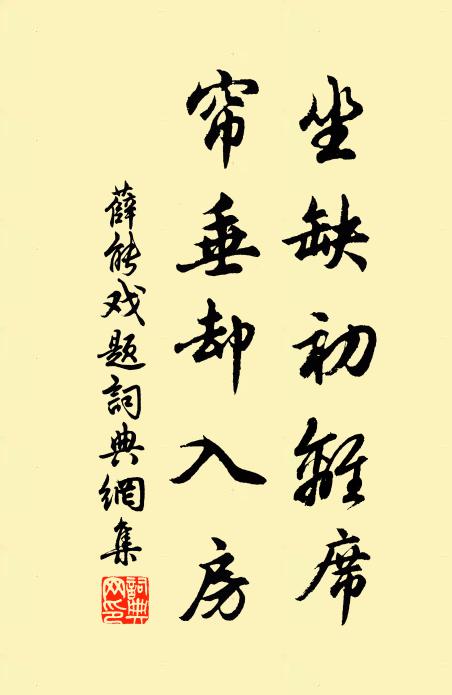 坐缺初離席
帘垂却入房
薛能戏题詞典網集
詞典网印